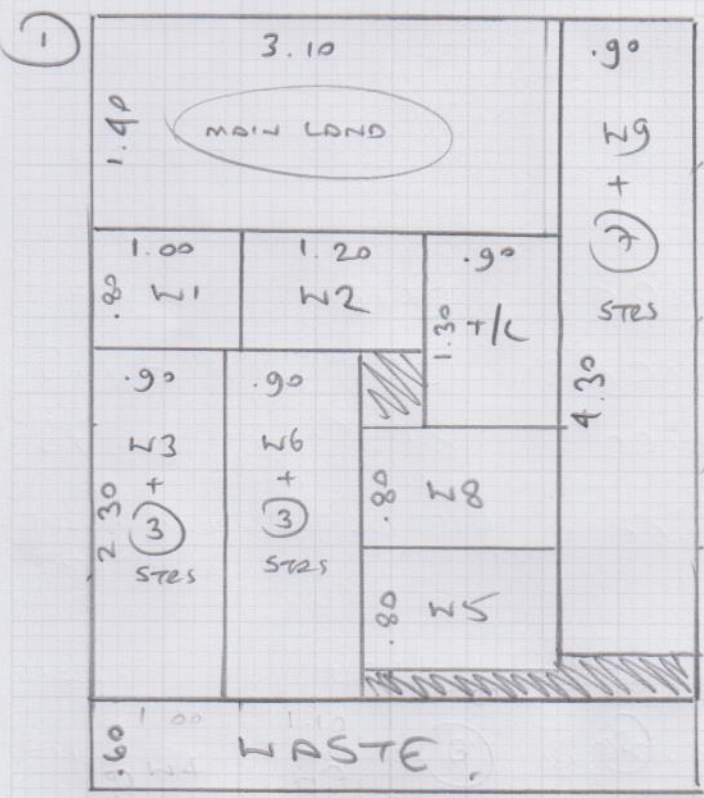 1
3.10
1.40
MAIN LAND
.90
W9
+
7
STRS
4.30
1.00
.80 W1
1.20
W2
.90
1.30
.90
W3
+
2.30
3
STRS
.90
W6
+
3
STRS
.80 W8
.80 W5
.60
WASTE.